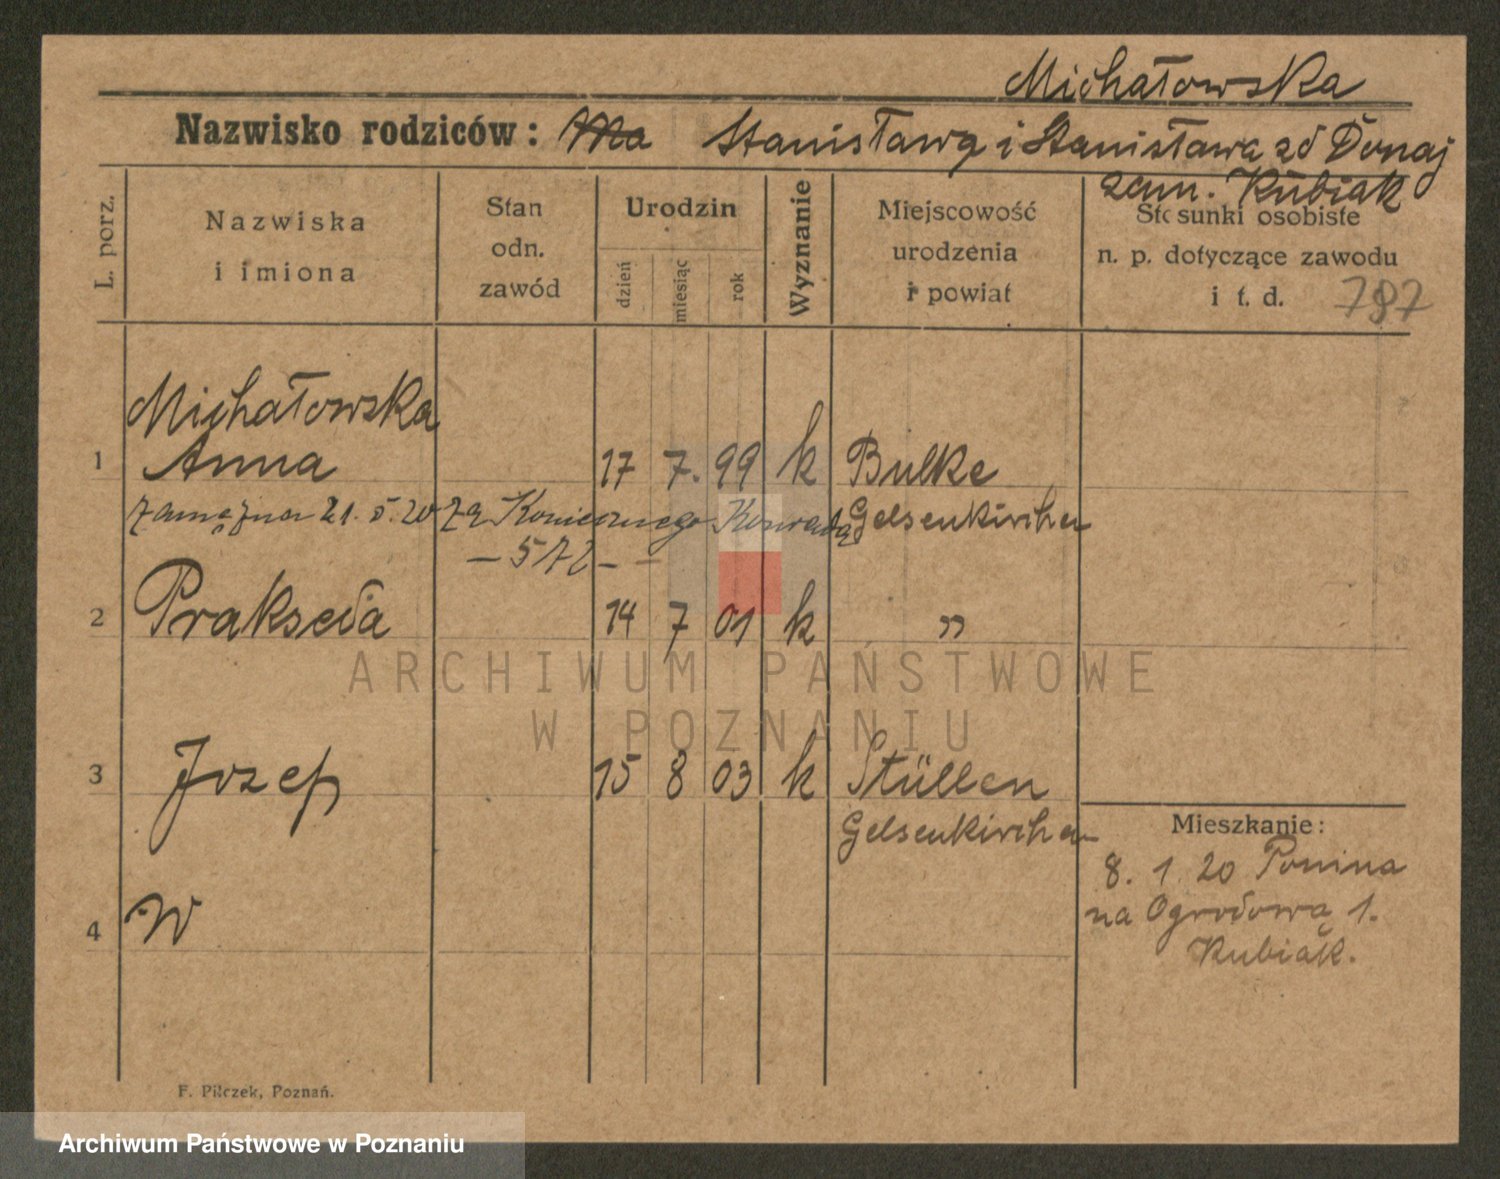 Michałowska
Nazwisko rodziców: Ma Stanisława i Stanisława zd Donaj
zam. Kubiak
L. porz.
Nazwiska
i imiona
Stan
odn.
zawód
Urodzin
dzień
miesiąc
rok
Wyznanie
Miejscowość
urodzenia
i powiat
Stosunki osobiste
n. p. dotyczące zawodu
i t. d. 787
Michałowska
1 Anna 17 7. 99 k Bulke
zamężna 21. 5. 20 za Koniecznego Konrada Gelsenkirchen
— 572 —
2 Prakseda 14 7 01 k „
3 Jozef 15 8 03 k Stüllen
Gelsenkirchen
Mieszkanie:
8. 1. 20 Ponina
na Ogrodową 1.
Kubiak.
4 W
F. Pilczek, Poznań.
ARCHIWUM PAŃSTWOWE
W POZNANIU
Archiwum Państwowe w Poznaniu